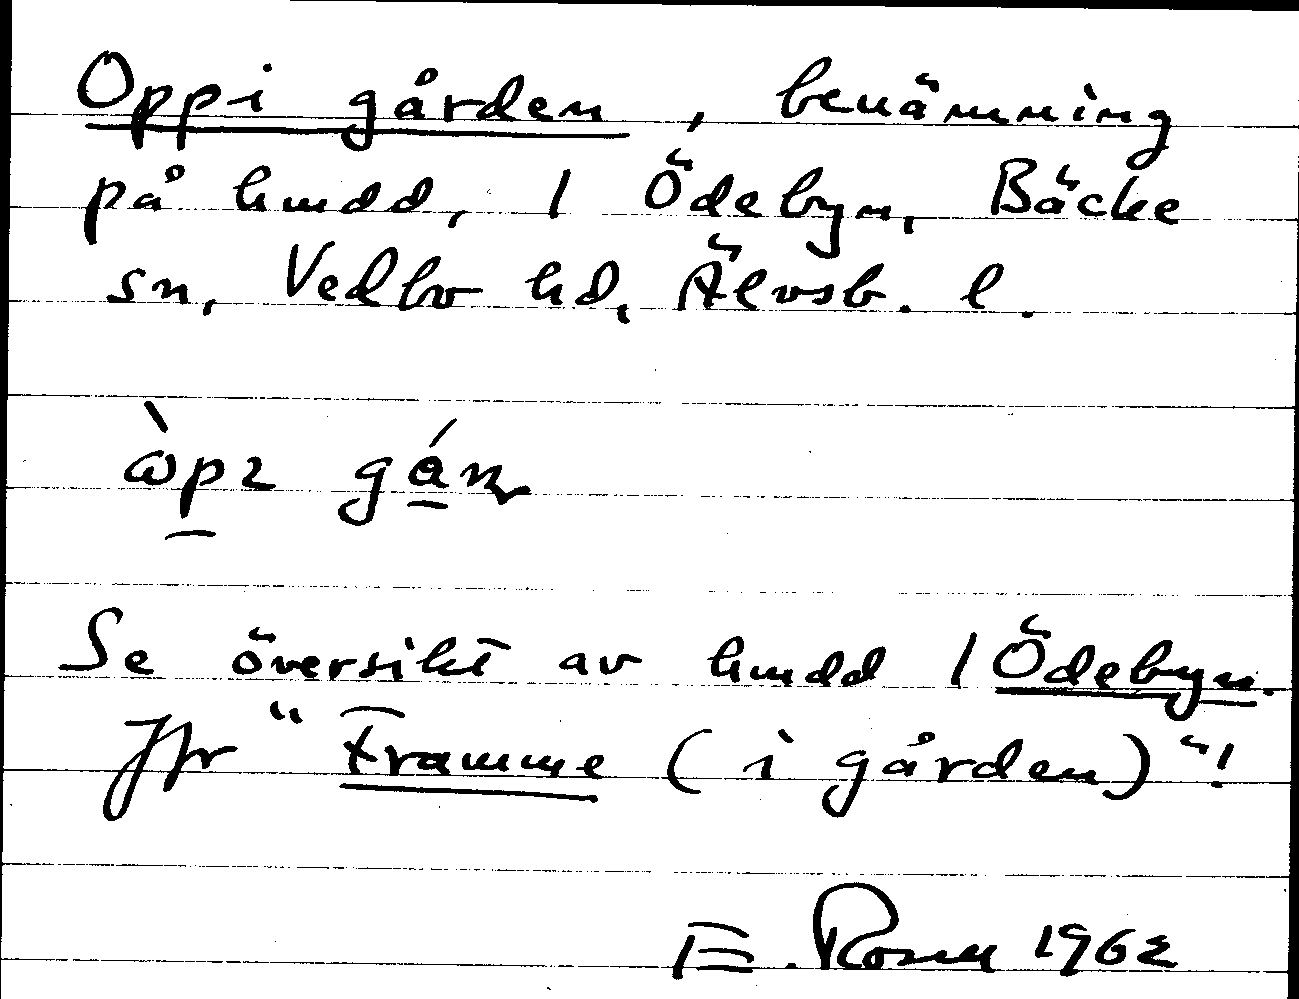 Oppi gården, benämning
på hmdd, 1 Ödebyn, Bäcke
sn, Vedbo hd, Älvsb. l.
gán
Se översikt av hmdd 1 Ödebyn.
Jfr "Framme (i gården)"!
E. Rosell 1962